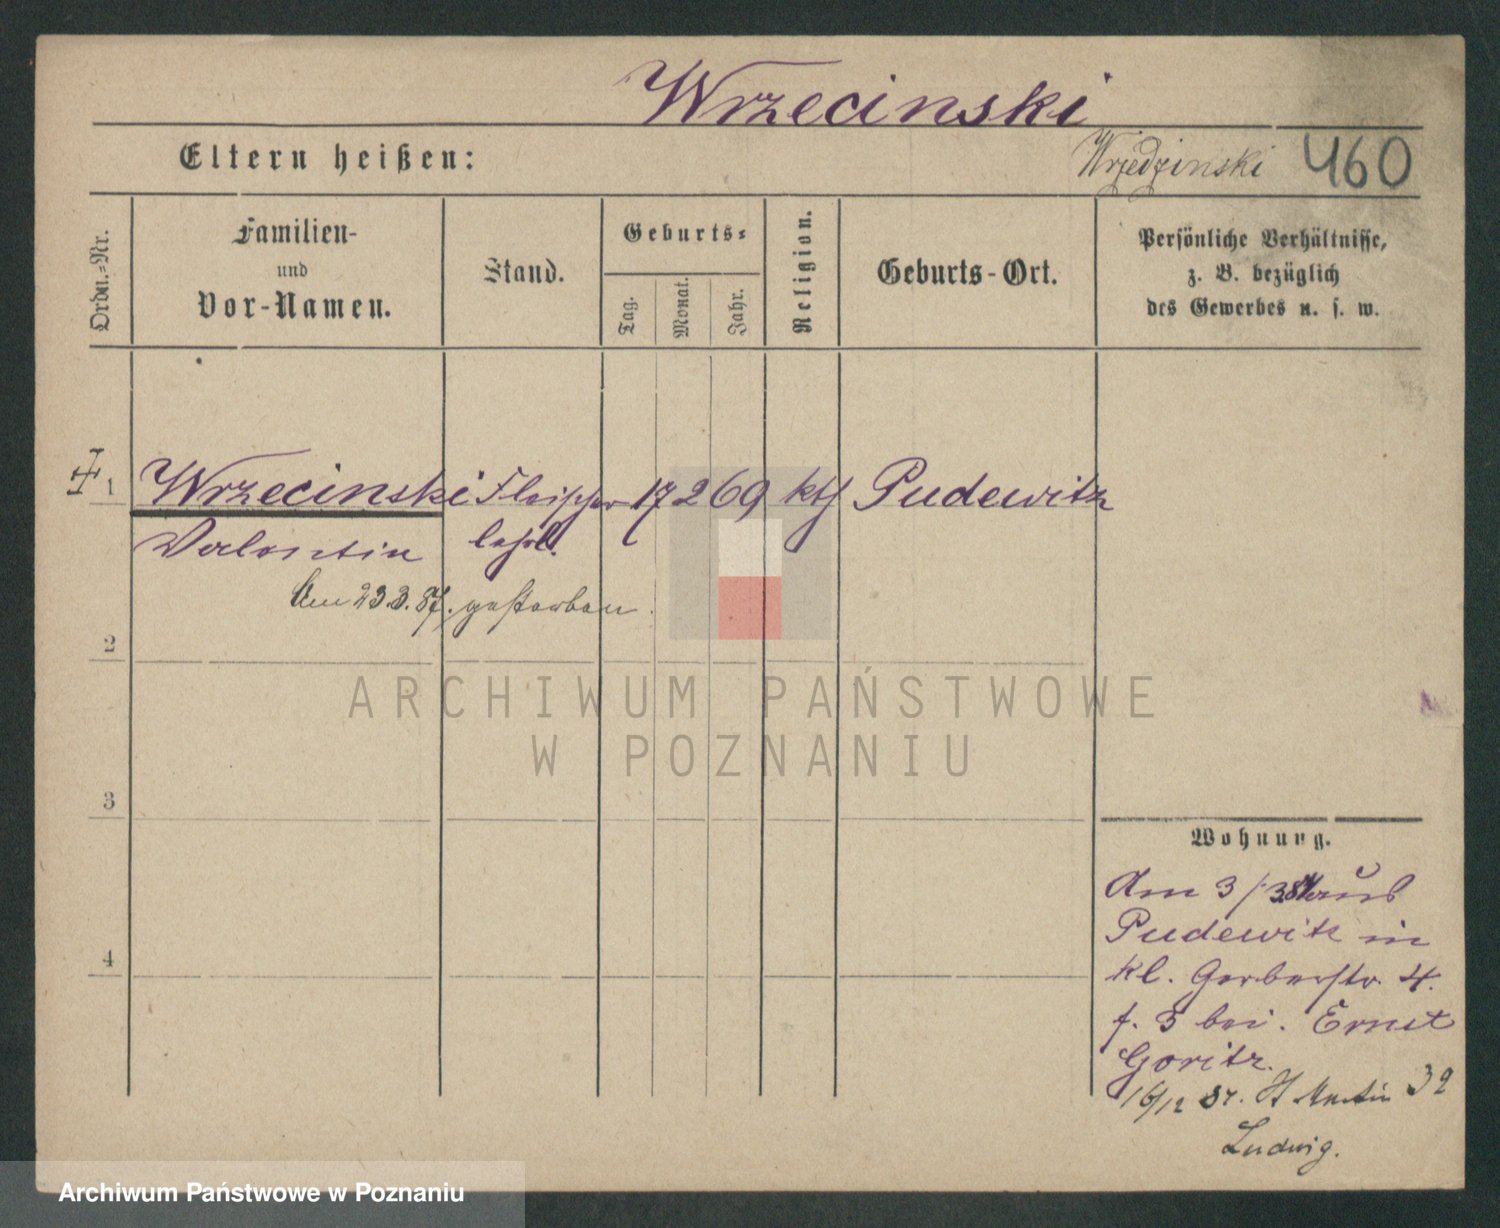 Wrzecinski
Eltern heißen:
Wrzedzinski 460
Ordn.=Nr.
Familien-
und
Vor-Namen.
Stand.
Geburts=
Tag.
Monat.
Jahr.
Religion.
Geburts-Ort.
Persönliche Verhältnisse,
z. B. bezüglich
des Gewerbes u. s. w.
1 Wrzecinski Fleischer 17 2 69 kth Pudewitz
Valentin lehrl.
Am 23.3.87. gestorben.
2
ARCHIWUM PAŃSTWOWE
W POZNANIU
3
4
Wohnung.
Am 3/3. aus
Pudewitz in
kl. Gerberstr. 4.
f. 3 bei. Ernst
Goritz.
16/12 87. St Martin 32
Ludwig.
Archiwum Państwowe w Poznaniu